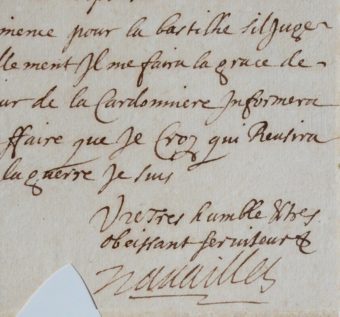 mence pour la bastilhe sil Juge
llement Il me faira la grace de-
ur de la Cardonniere Informera
ffaire que Je Croy qui Reusira
la guerre Je suis
Vre tres humble & tres
obeissant serviteur &
Navailles